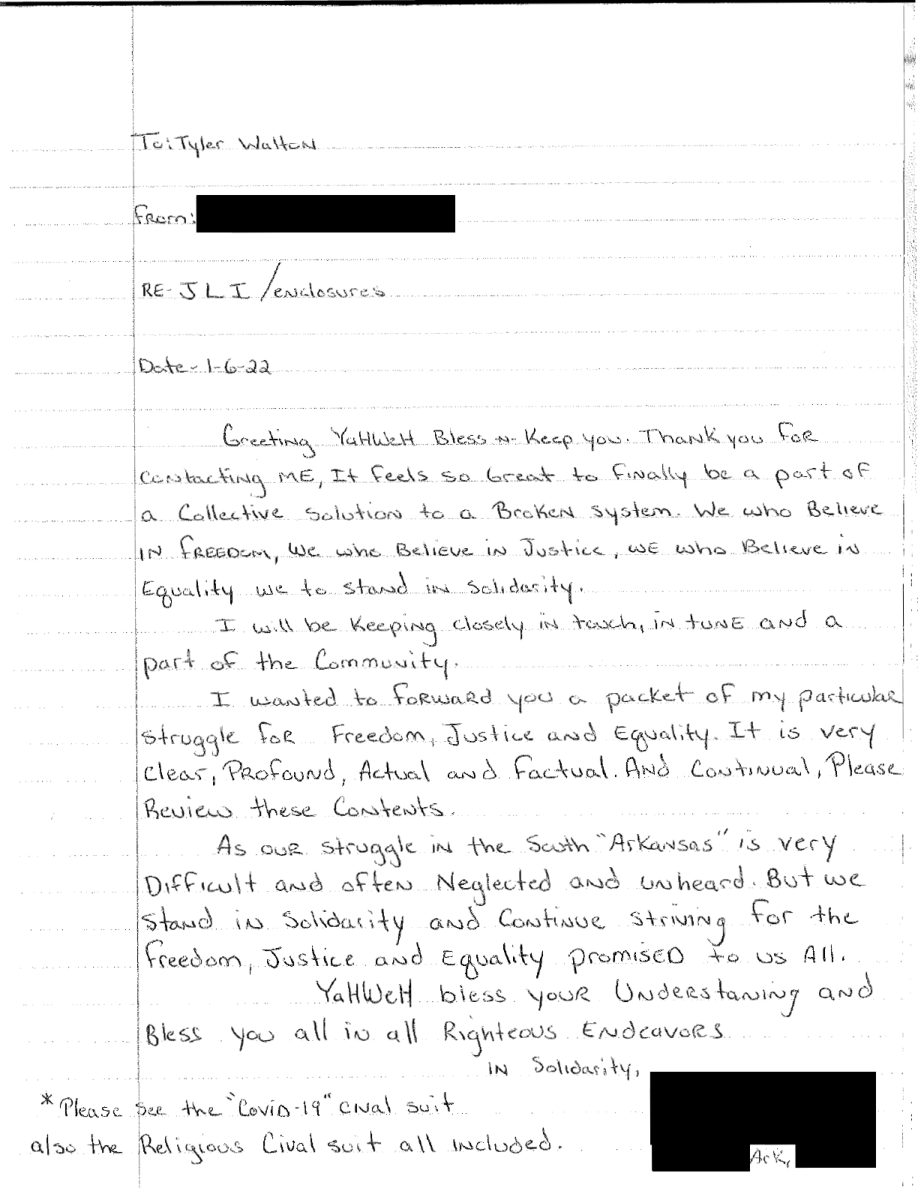 To: Tyler Walton
From:
RE- JLI/enclosures
Date- 1-6-22
Greeting YaHWeH Bless -N- Keep you. Thank you FOR
Contacting ME, It feels so Great to finally be a part of
a Collective Solution to a Broken System. We who Believe
IN FREEDOM, We who Believe in Justice, WE who Believe in
Equality we to stand in Solidarity.
I will be Keeping closely in touch, in tune and a
part of the Community.
I wanted to forward you a packet of my particular
struggle for Freedom, Justice and Equality. It is very
Clear, Profound, Actual and Factual. And Continual, Please
Review these Contents.
As our struggle in the South "Arkansas" is very
Difficult and often Neglected and unheard. But we
Stand in Solidarity and Continue striving for the
Freedom, Justice and Equality promised to us All.
YaHWeH bless your Understaning and
Bless you all in all Righteous Endeavors
IN Solidarity,
* Please see the "Covid-19" cival suit
also the Religious Cival suit all included.
Ark,